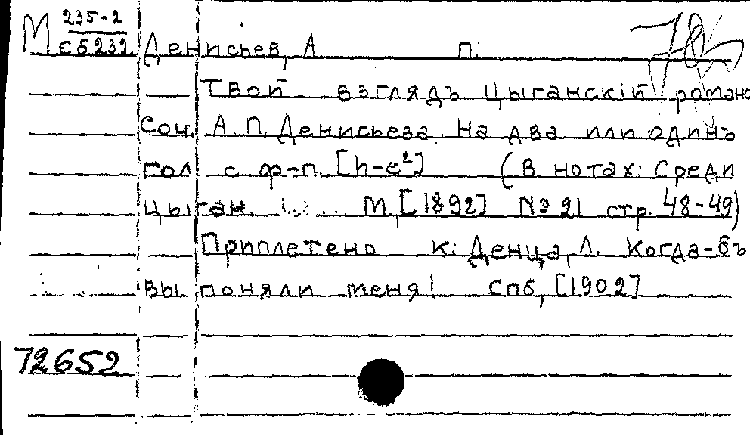 М 235-2
с 5232 Денисьев, А п.
Твой взглядъ Цыганскiй романс
Соч. А.П. Денисьева. На два или одинъ
гол с ф-п. [h-e²] (В нотах: Среди
цыган. М. [1892] № 21 стр. 48-49)
Приплетено к: Денца, Л. Когда-бъ
вы поняли меня! Спб, [1902]
72652